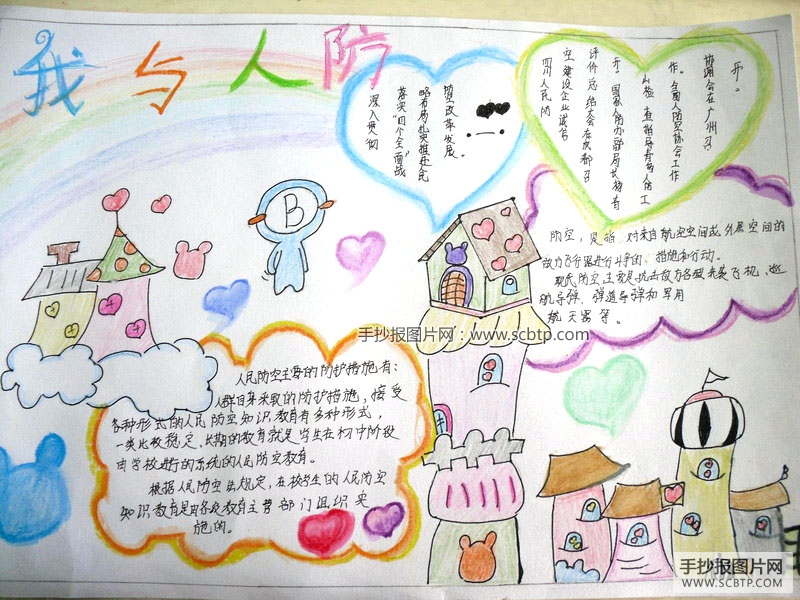 我与人防
深入贯彻
落实“四个全面”战
略布局扎实推进民
防空改革发展。
四川人民防
空建设企业诚信
评价总结大会在成都召
开。国家人防办副局长
检查指导青岛人防工
作。全国人防空协会工作
协调会在广州召
开。
防空，是指对来自航空空间或外层空间的
敌方飞行器进行斗争的措施和行动。
现代防空主要是抗击敌方各级来袭飞机、巡
航导弹、弹道导弹和军用
航天器等。
B
手抄报图片网：www.scbtp.com
人民防空主要的防护措施有：
人群自身采取的防护措施，接受
各种形式的人民防空知识教育有多种形式，
一类比较稳定、长期的教育就是学生在初中阶段
由学校进行的系统的人民防空教育。
根据人民防空法规定，在校学生的人民防空
知识教育是由各级教育主管部门组织实
施的。
手抄报图片网
WWW.SCBTP.COM